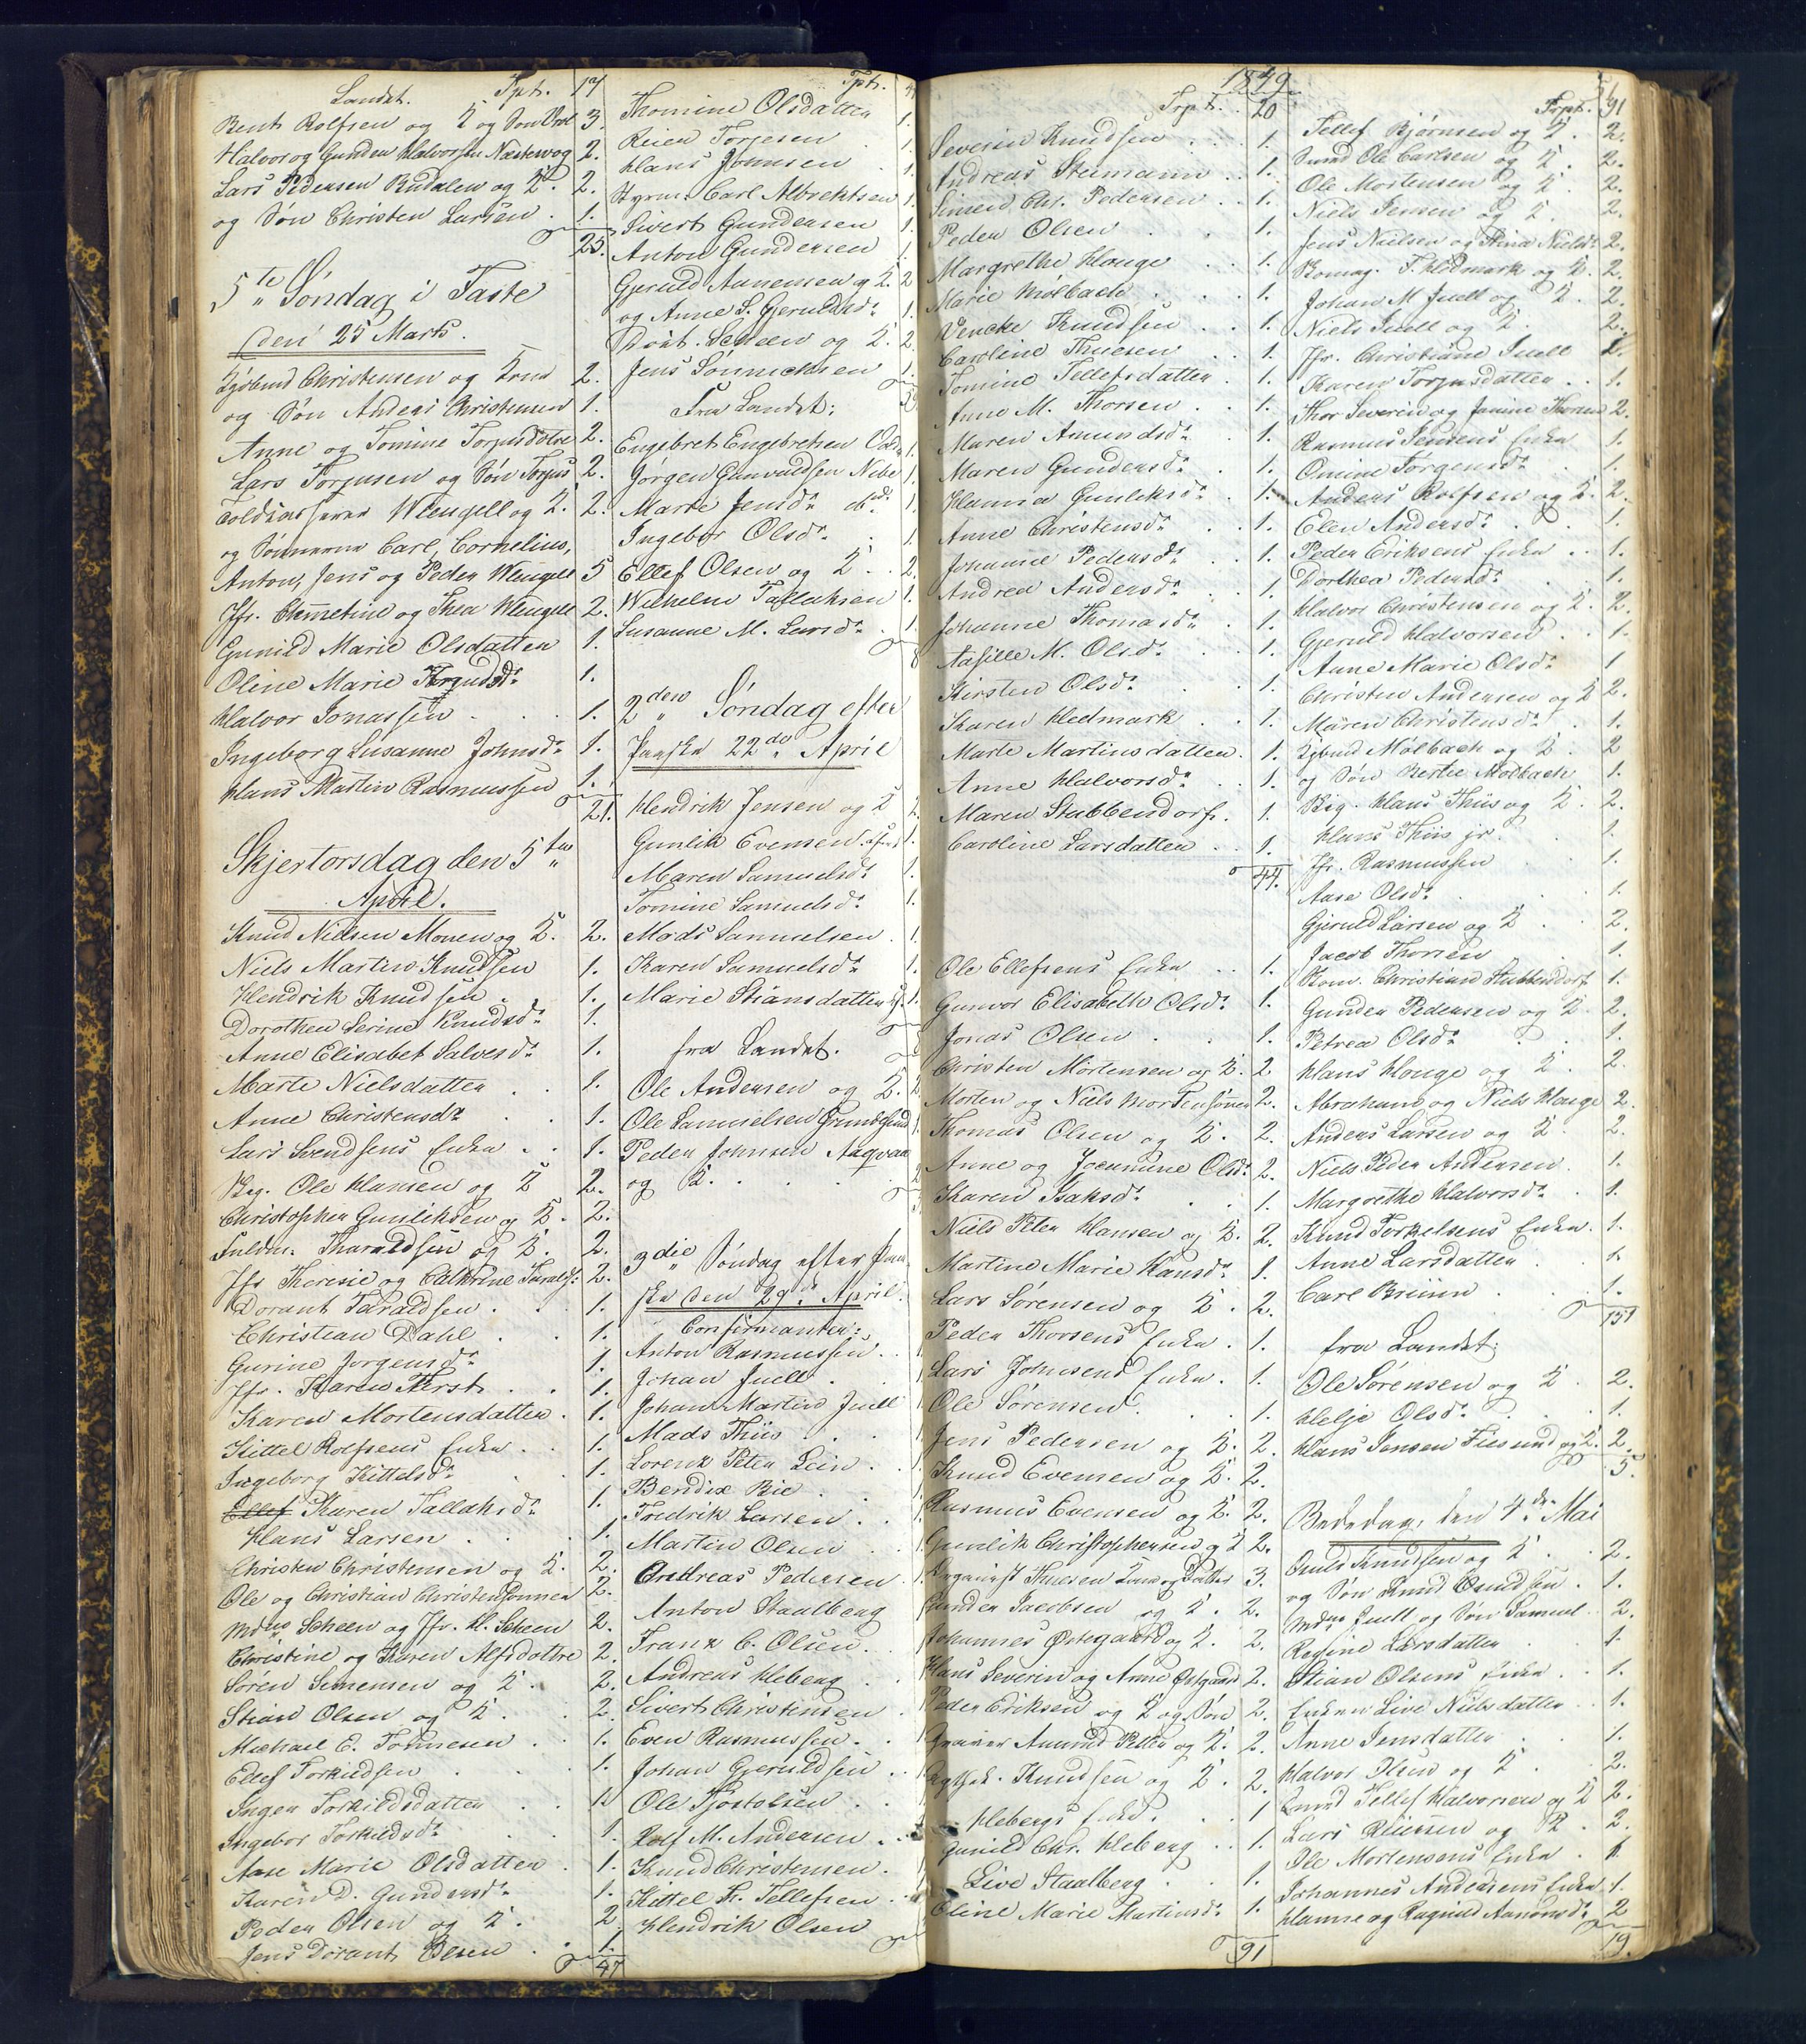 Landet. Tpt. 17
Bent Rolfsen og K og Søn 3.
Halvor og Gunder Halvorssen Næskevog 2.
Lars Pedersen Rudalen og K. 2.
og Søn Christen Larsen . 1.
25.
5te Søndag i Faste
den 25 Marts.
Christensen og Kone 2.
og Søn Anders Christensen 1.
Anne og Tomine Torjusdøtre 2.
Lars Torjusen og Søn Torjus 2.
Toldkasserer Wengell og K. 2.
og Sønnerne Carl, Cornelius,
Anton, Jens og Peder Wengell 5
Jfr. og Thea Wengell 2.
Gunild Marie Olsdatter 1.
Oline Marie 1.
Halvor Jonassen . . 1.
Ingeborg Susanne Johnsdr 1.
Hans Martin Rasmussen 1.
21.
Skjertorsdag den 5te
April.
Knud Nielsen Monen og K. 2.
Niels Martin Knudsen 1.
Hendrik Knudsen . 1.
Dorothea Serine Knudsdr 1.
Anne Elisabet Salvesdr 1.
Marte Nielsdatter . 1.
Anne Christensdr . 1.
Lars Svendsens Enke . . 1.
Bag. Ole Hansen og K 2.
Christopher Gunliksen og K. 2.
Fuldm. Tharaldsen og K. 2.
Jfr Theresie og Cathrine Taralds: 2.
Dorant Taraldsen . . 1.
Christian Dahl . . 1.
Gurine Jørgensdr 1.
Jfr. Karen Kerst . . 1.
Karen Mortensdatter . 1.
Kittel Rolfsens Enke . . 1.
Ingeborg Kittelsdr 1.
Karen Tallaksdr 1.
Hans Larsen . . 1.
Christen Christensen og K. 2.
Ole og Christian Christensønner 2.
Mdme Scheen og Jfr. H. Scheen 2.
Christine og Karen Alfsdøttre 2.
Søren Simensen og K . 2.
Stian Olsen og K. . 2.
Michael E. Tønnesen . 1.
Ellef Torkildsen . 1.
Inger Torkildsdatter . . 1.
Ingebor Torkildsdr . 1.
Aase Marie Olsdatter . 1.
Karen D. Gundersdr . 1.
Peder Olsen og K. . 2
Jens Dorant Olsen . . 1.
47
Tpt.
Thomine Olsdatter 1.
Reier Torjesen 1.
Hans Johnsen . 1.
Styrm. Carl Albrektsen 1.
Sivert Gundersen 1
Anton Gundersen 1
Gjeruld Aanensen og K. 2
og Anne S. Gjeruldsdr 1.
Scheen og K. 2.
Jens Sønnichsen 1.
Fra Landet:
Engebret Engebretsen 1.
Jørgen Gunvaldsen Nebe 1.
Marte Jensdr do. 1.
Ingebor Olsdr 1.
Ellef Olsen og K. . 2.
Wilhelm Tallaksen 1.
Susanne M. Larsdr . 1.
2den Søndag efter
Paaske 22de April
Hendrik Jensen og K 2
Gunlik Evensen 1.
Maren Samuelsdr 1.
Tomine Samuelsdr 1.
Mads Samuelsen . 1.
Karen Samuelsdr 1.
Marie Stiansdatter 1.
fra Landet.
Ole Andersen og K. 2
Ole Samuelsen Grundesund 1
Peder Johnsen
og K. . . . 2
3die Søndag efter Paa-
ske den 29de April.
Confirmanter:
Anton Rasmussen . .
Johan Juell . .
Johan Martin Juell
Mads Thiis . . .
Lorenz Peter Lein .
Bendix Bie . . .
Fredrik Larsen . .
Martin Olsen . .
Andreas Pedersen .
Anton Staalberg
Franz C. Olsen .
Andreas Heberg . .
Sivert Christensen .
Even Rasmussen . .
Johan Gjeruldsen . .
Ole Tjøstolsen . . .
Rolf M. Andersen . .
Knud Christensen . .
Kittel Fr. Tellefsen . .
Hendrik Olsen .
1849.
Trpt. . 20
Severin Knudsen . . . 1.
Andreas Steimann . . 1.
Simen Chr. Pedersen . . 1.
Peder Olsen . . 1.
Margrethe Hauge . . 1.
Marie Mølbach . . . 1.
Vencke Knudsen . . 1.
Caroline Thuesen . . 1.
Tomine Tellefsdatter . 1.
Anne M. Thorsen . . 1.
Maren Amundsdr . 1.
Maren Gundersdr . 1.
Hanna Gunliksdr . 1.
Anne Christensdr . . 1.
Johanne Pedersdr . . 1.
Andrea Andersdr . . 1.
Johanne Thomasdr . 1.
Aasille M. Olsdr . . 1.
Kirsten Olsdr . . 1.
Karen Hedmark . . 1.
Marte Martinsdatter . 1.
Anne Halvorsdr . . 1.
Maren Stubbendorf. . 1.
Caroline Larsdatter . . 1.
44.
Ole Ellefsens Enke . . 1.
Gunvor Elisabeth Olsdr 1.
Jonas Olsen . . 1.
Christen Mortensen og K. 2.
Morten og Niels Mortensønner 2.
Thomas Olsen og K. . 2.
Anne og Olsdr 2.
Karen Isaksdr . . 1.
Niels Peter Hansen og K. 2.
Martine Marie Hansdr 1.
Lars Sørensen og K. . 2.
Peder Thorsens Enke . 1.
Lars Johnsens Enke . 1.
Ole Sørensen . . . 1.
Jens Pedersen og K. . 2.
Knud Evensen og K. 2.
Rasmus Evensen og K. 2.
Gunlik Christophersen og K 2.
Thuesen Kone og Datter 3.
Gunder Jacobsen og K. . 2.
Johannes Østegaard og K. 2.
Hans Severin og Anne Østgaard 2.
Peder Eriksen og K og Søn 2.
Graver Amund Petter og K. 2.
Knudsen og K . 2.
Hebergs Enke . . 1
Gunild Chr. Heberg . . 1.
Live Staalberg . . 1.
Oline Marie Martinsdr 1.
91
51
Trpt. 91
Tellef Bjørnsen og K . 2.
Smed Ole Carlsen og K . 2.
Ole Mortensen og K . 2.
Niels Jensen og K . 2.
Jens Nielsen og Stina Nielsdr 2.
T. Hedmark og K. 2.
Johan M. Juell og K . 2.
Niels Juell og K . 2.
Jfr. Christiane Juell 1.
Karen Torjusdatter . . 1.
Thor Severin og Janine Thorsen 2.
Rasmus Jensens Enke . 1.
Omine Jørgensdr . 1.
Anders Rolfsen og K. . 2.
Elen Andersdr . . 1.
Peder Eriksens Enke . . 1.
Dorthea Pedersdr . 1.
Halvor Christensen og K. 2.
Gjeruld Halvorsen . . 1.
Anne Marie Olsdr 1
Christen Andersen og K 2.
Maren Christensdr . 1.
Mølbach og K . 2
og Søn Mølbach 1.
Hans Thiis og K . 2.
Hans Thiis jr. . 1.
Jfr. Rasmussen . 1.
Aase Olsdr . . 1.
Gjeruld Larsen og K . 2.
Jacob Thorsen . 1.
Christian Stubbendorf 1.
Gunder Pedersen og K . 2.
Petrea Olsdr . . 1.
Hans Hauge og K . 2.
Abraham og Niels Hauge 2.
Anders Larsen og K . 2.
Niels Peder Andersen . 1.
Margrethe Halvorsdr . 1.
Knud Torkelsens Enke . 1.
Anne Larsdatter . . 1.
Carl Bruun . . 1.
151
fra Landet:
Ole Sørensen og K . 2.
Helje Olsdr . . . 1.
Hans Jensen og K. 2.
5.
Bededag, den 4de Mai
Knudsen og K . . 2.
og Søn Knud Knudsen . 1.
Mdme Juell og Søn Samuel . 2.
Regine Larsdatter . 1.
Stian Olsens Enke . . 1.
Enken Live Nielsdatter . . 1.
Anne Jensdatter . . 1.
Halvor Olsen og K . . 2.
Tellef Halvorsen og K 2.
Lars og K . 2.
Ole Mortensens Enke . 1
Johannes Andersens Enke 1.
Hanne og Ragnild Aanonsdr 2
19.